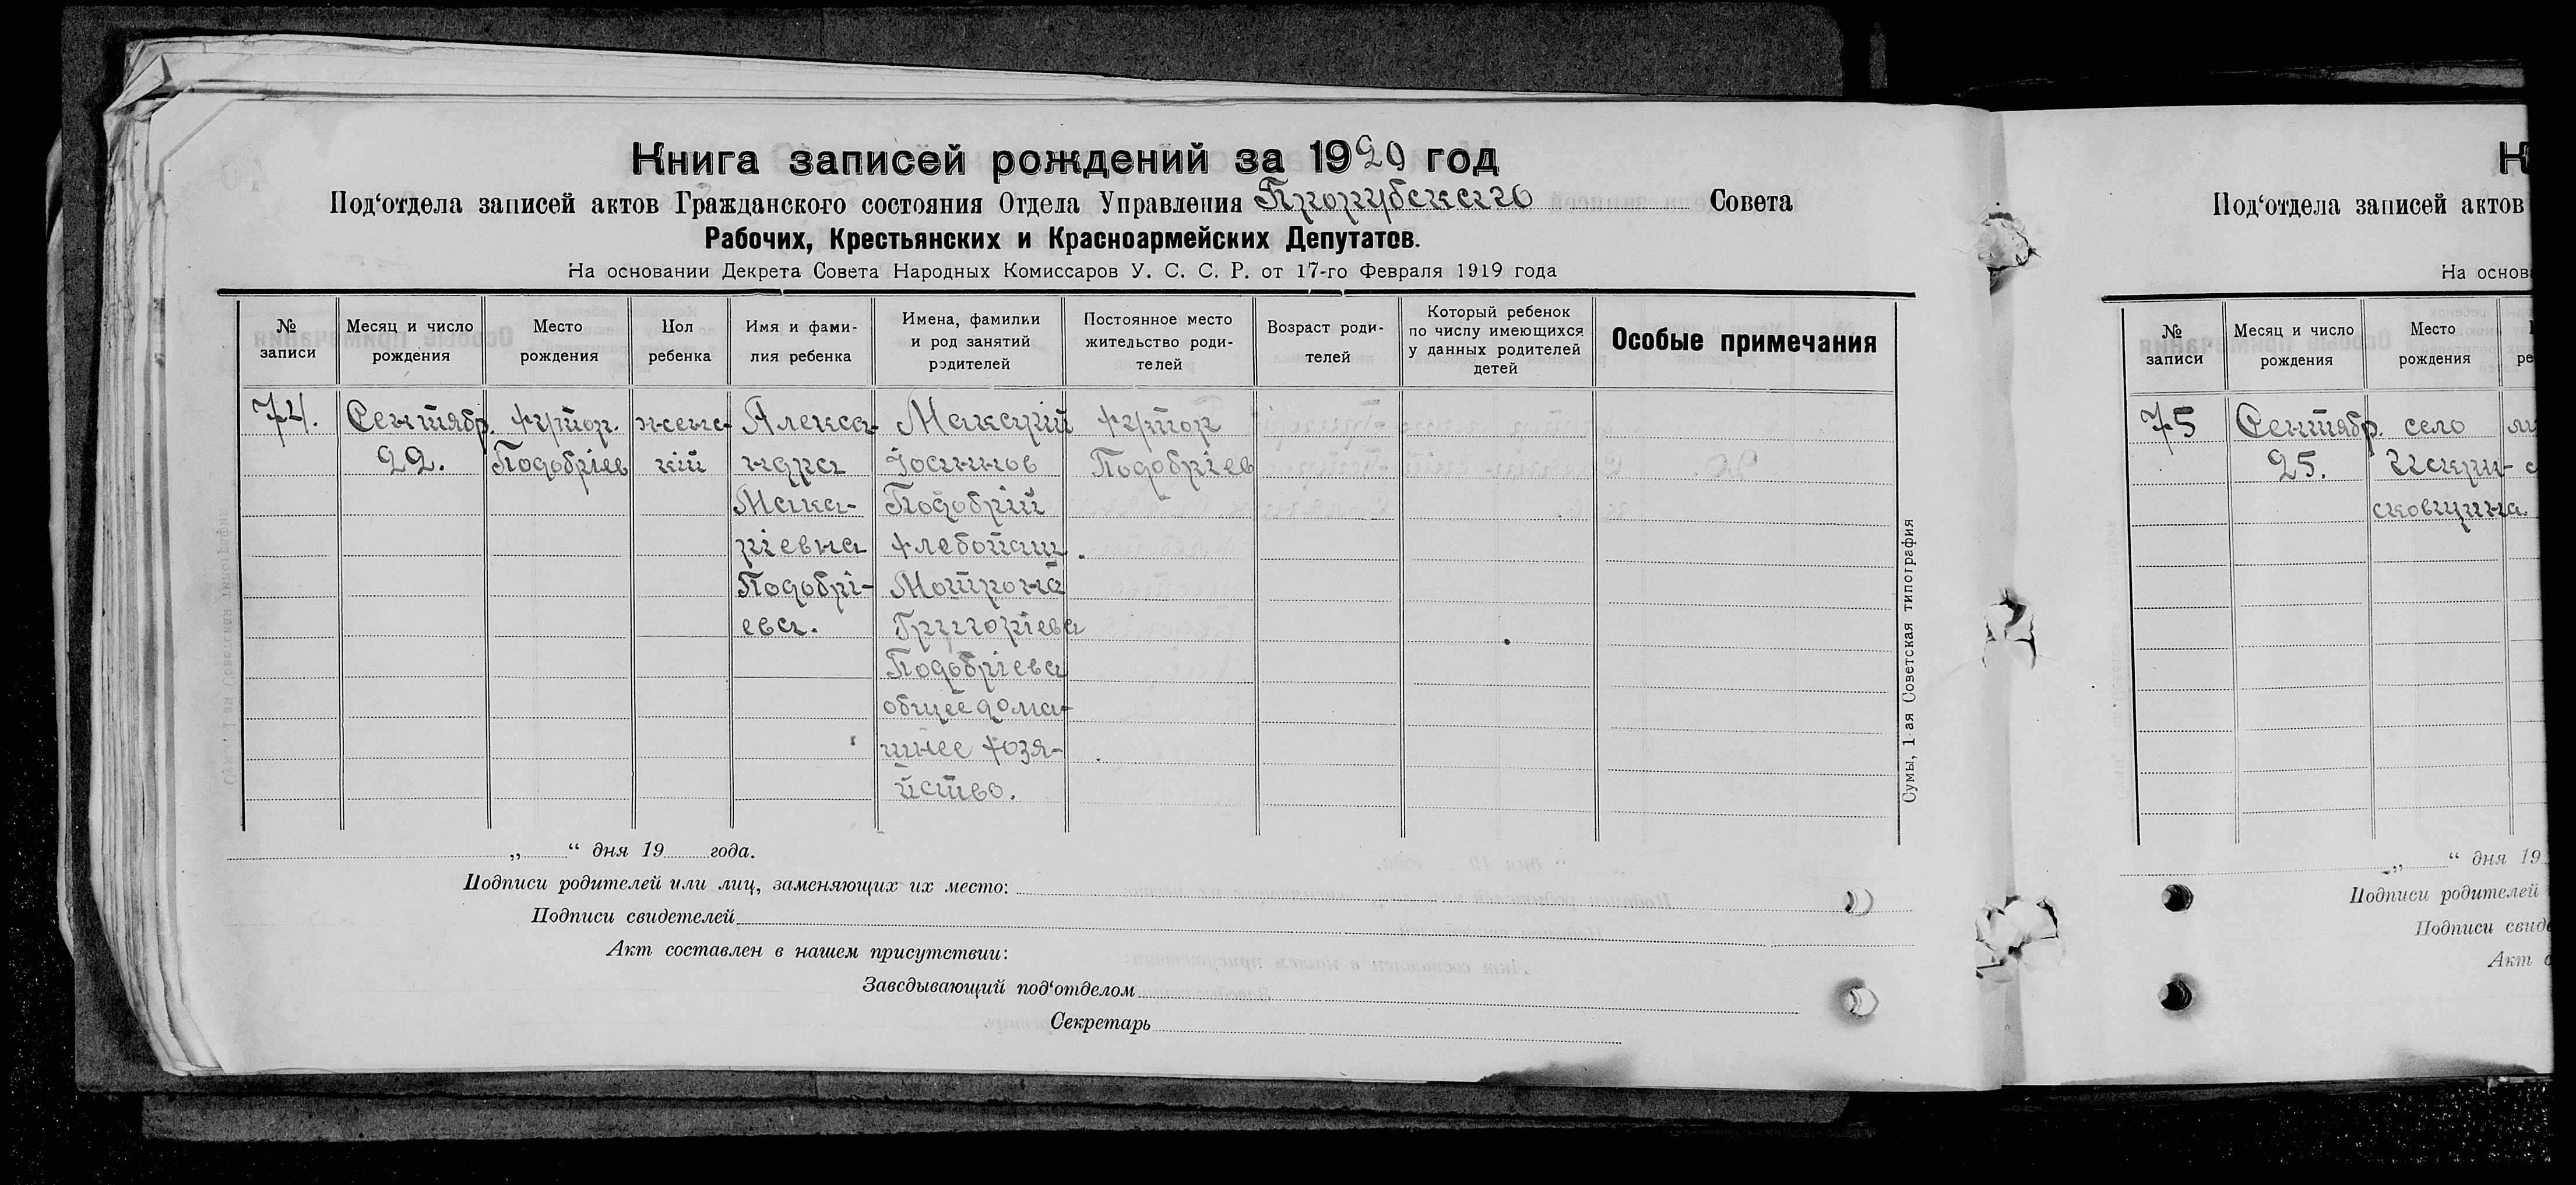 Книга записей рождений за 1920 год
Под‘отдела записей актов Гражданского состояния Отдела Управления Прорубскаго Совета
Рабочих, Крестьянских и Красноармейских Депутатов.
На основании Декрета Совета Народных Комиссаров У. С. С. Р. от 17-го Февраля 1919 года
№ записи
Месяц и число рождения
Место рождения
Пол ребенка
Имя и фами-
лия ребенка
Имена, фамилки
и род занятий
родителей
Постоянное место
жительство роди-
телей
Возраст роди-
телей
Который ребенок
по числу имеющихся
у данных родителей
детей
Особые примечания
74.
Сентябр.
22.
хутор.
Подобріев
женс-
кій
Алекса-
ндра
Мака-
ріевна
Подобрі-
ева.
Макарий
Іоаннов
Подобрий
хлебопаш.
Мотрона
Григоріева
Подобріева
общее дома-
шнее хозя-
йство.
хутор
Подобріев
„ “ дня 19 года.
Подписи родителей или лиц, заменяющих их место:
Подписи свидетелей
Акт составлен в нашем присутствии:
Заведывающий под‘отделом
Секретарь
Сумы, 1-ая Советская типография
К
Под‘отдела записей актов
На основ
№ записи
Месяц и число рождения
Место рождения
75
Сентябр.
25.
село
Искри-
сковщина.
„ “ дня 19
Подписи родителей
Подписи свиде
Акт с